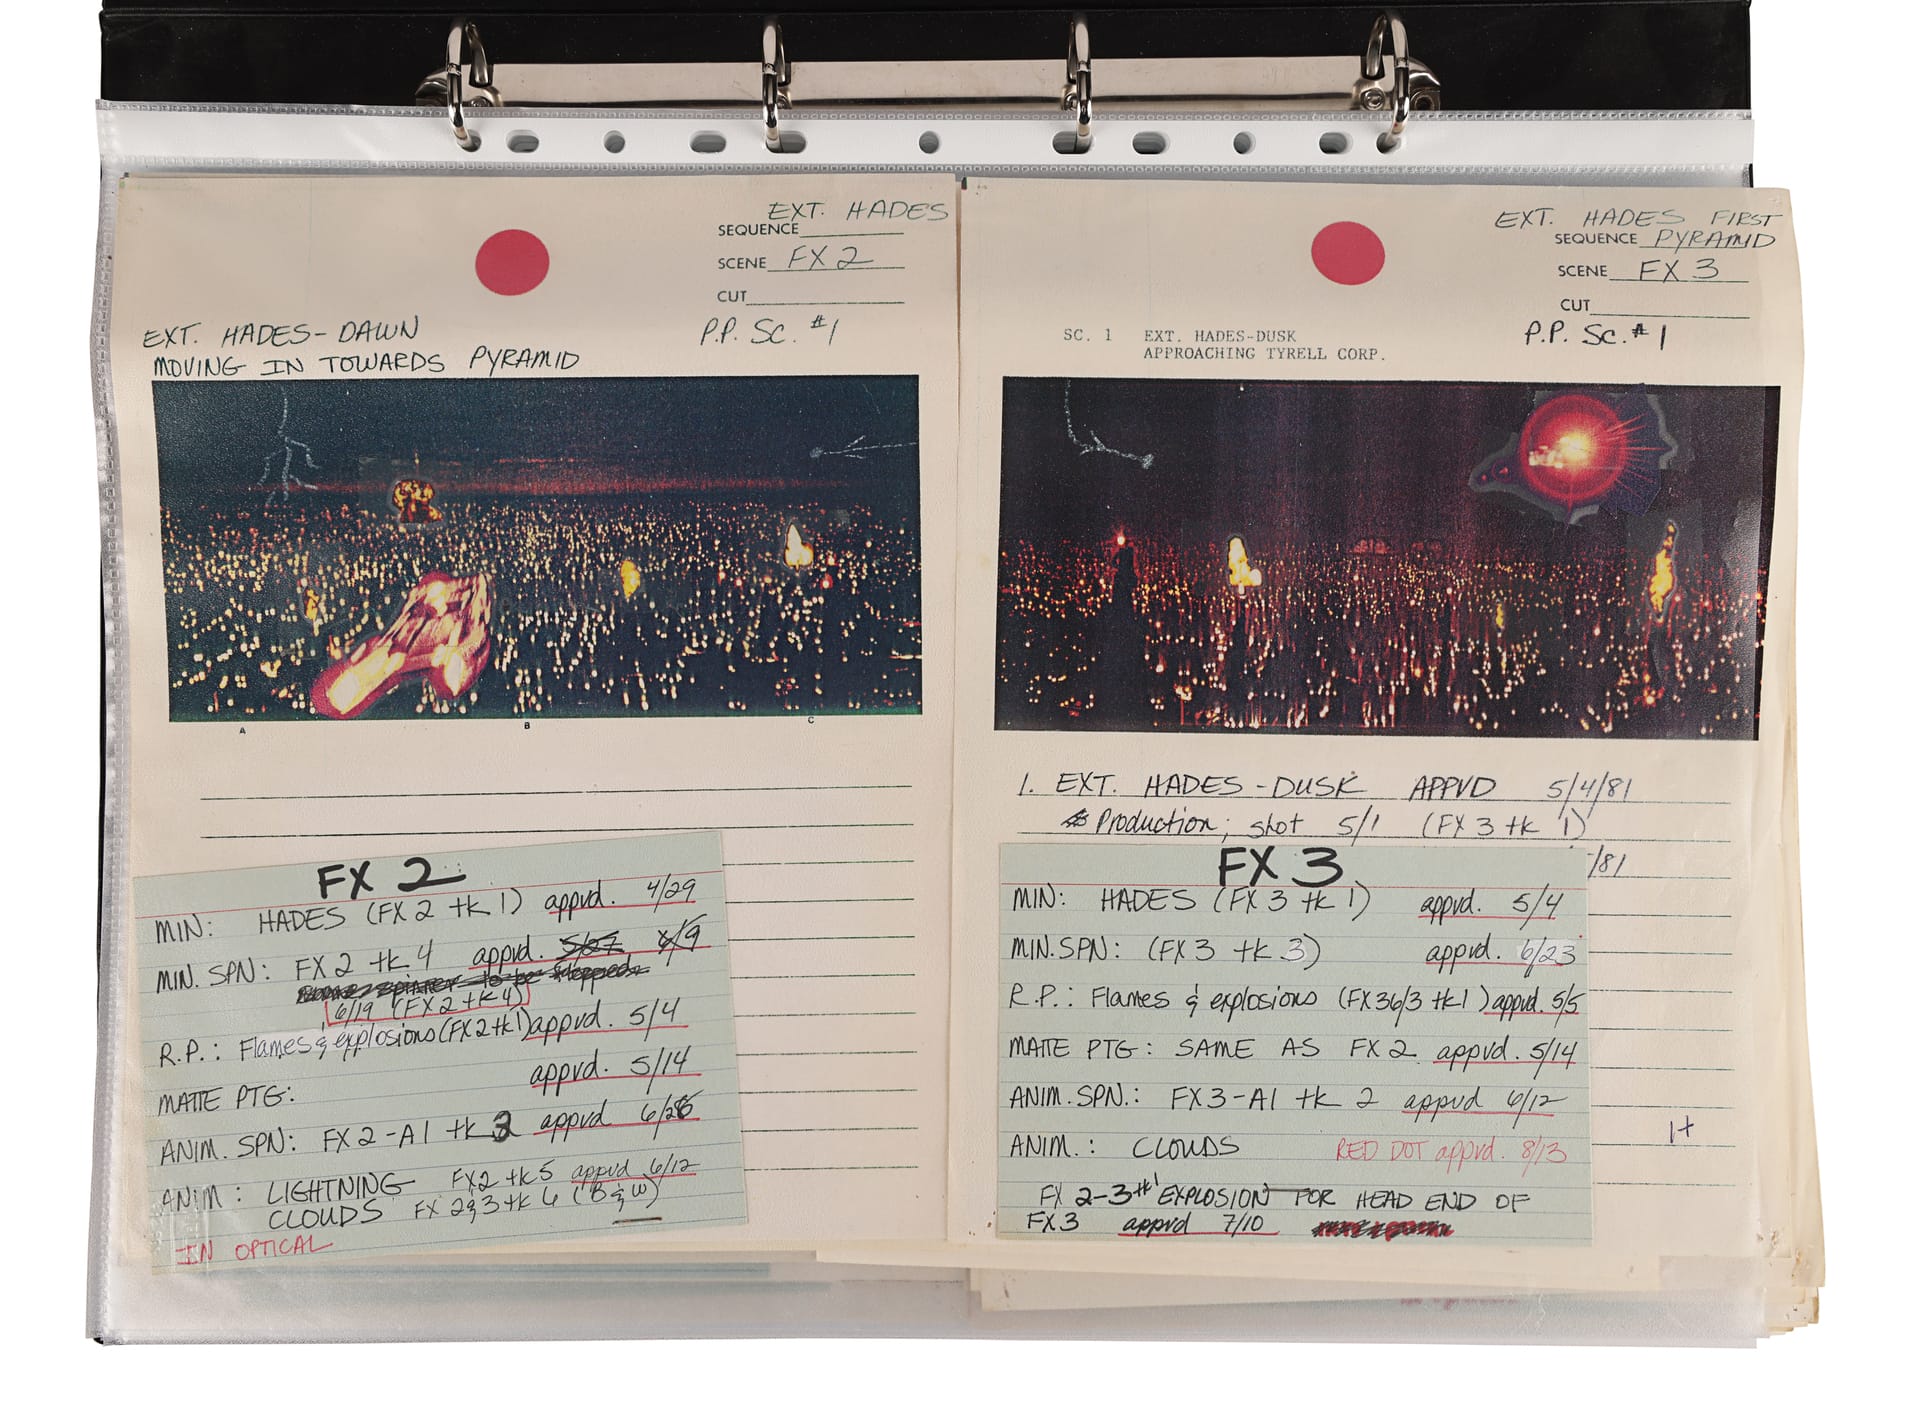 EXT. HADES
SEQUENCE
SCENE FX 2
CUT
P.P. SC. #1
EXT. HADES-DAWN
MOVING IN TOWARDS PYRAMID
A B C
FX 2
MIN: HADES (FX 2 tk 1) appvd. 4/29
MIN. SPN: FX 2 tk 4 appvd. 5/27 6/9
spinner to be
6/19 (FX 2 tk 4)
R.P.: Flames & explosions (FX 2 tk 1) appvd. 5/4
MATTE PTG: appvd. 5/14
ANIM. SPN: FX 2-A1 tk 3 appvd 6/26
ANIM: LIGHTNING FX2 tk 5 appvd 6/12
CLOUDS FX 2&3 tk 6 (B&W)
IN OPTICAL
EXT. HADES FIRST
SEQUENCE PYRAMID
SCENE FX 3
CUT
P.P. SC. #1
SC. 1 EXT. HADES-DUSK
APPROACHING TYRELL CORP.
1. EXT. HADES-DUSK APPVD 5/4/81
Production; shot 5/1 (FX 3 tk 1)
/81
FX 3
MIN: HADES (FX 3 tk 1) appvd. 5/4
MIN. SPN: (FX 3 tk 3) appvd. 6/23
R.P.: Flames & explosions (FX36/3 tk 1) appvd. 5/5
MATTE PTG: SAME AS FX 2 appvd. 5/14
ANIM. SPN.: FX 3-A1 tk 2 appvd 6/12
ANIM.: CLOUDS RED DOT appvd. 8/13
FX 2-3 tk1 EXPLOSION FOR HEAD END OF
FX 3 appvd 7/10
1+